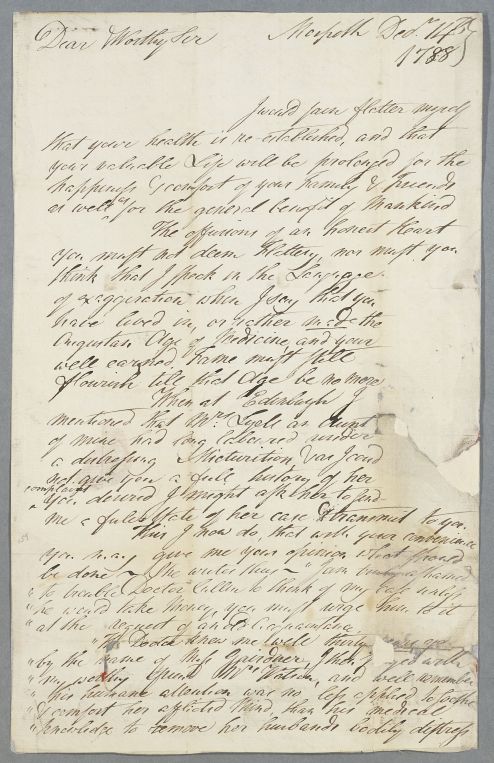 Dear Worthy Sir
Morpeth Decr. 14th
1788
I would fain flatter myself
that your health is re-established, and that
your valuable Life will be prolonged for the
happiness & comfort of your Family & Friends
as well as for the general benefit of Mankind
The effusions of an honest Heart
you must not deem Flattery, nor must you
think that I speak in the Language
of exaggeration when I say that you
have lived in, or rather made the
Augustan Age of Medicine, and your
well earned Fame must still
flourish till that Age be no more
When at Edinburgh I
mentioned that Mrs. Lyell an Aunt
of mine had long laboured under
a distressing Micturition, I could
not give you a full history of her
complaint
You desired I might ask her to send
me a full State of her case & transmit to you
This I now do, that with your convenience
you may give me your opinion what should
be done - She writes thus - "I am ashamed
"to trouble Doctor Cullen to think of my case unless
"he would take money, you must urge him to it
"at the request of an old Acquaintance
"The Doctor knew me well thirty years ago
"by the name of Miss Gairdner, when I lived with
"my worthy Friend Mrs. Watson, and well remember
"his humane attention was no less applied to soothe
"& comfort her afflicted Mind, than his medical
"knowledge to remove her husbands bodily distress